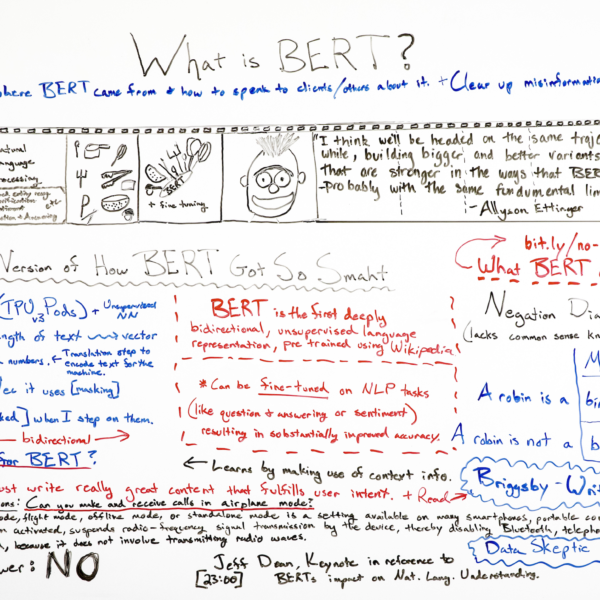 What is BERT?
where BERT came from + how to speak to clients/others about it. + Clear up misinformation
Natural
Language
Processing
+ fine tuning
BERT
"I think we'll be headed on the same traje
while, building bigger and better variants
that are stronger in the ways that BER
probably with the same fundamental lim
- Allyson Ettinger
Version of How BERT Got So Smaht
bit.ly/no-
What BERT
(TPU v3 Pods) + Unsupervised NN
ngth of text → vector
numbers. ← Translation step to
encode text for the
machine.
ec it uses [masking]
ked] when I step on them.
← bidirectional →
for BERT?
BERT is the first deeply
bidirectional, unsupervised language
representation, pre trained using Wikipedia
* Can be fine-tuned on NLP tasks
(like question & answering or sentiment)
resulting in substantially improved accuracy.
Negation Dia
(lacks common sense kn
M
A robin is a bi
A robin is not a b
← Learns by making use of context info.
ust write really great content that fulfills user intent. + Read →
Briggsby - Wri
ions: Can you make and receive calls in airplane mode?
ode, flight mode, offline mode, or standalone mode is a setting available on many smartphones, portable com
n activated, suspends radio-frequency signal transmission by the device, thereby disabling Bluetooth, telephon
, because it does not involve transmitting radio waves.
Data Skeptic
wer: NO
Jeff Dean, Keynote in reference to
[23:00] BERTs impact on Nat. Lang. Understanding.